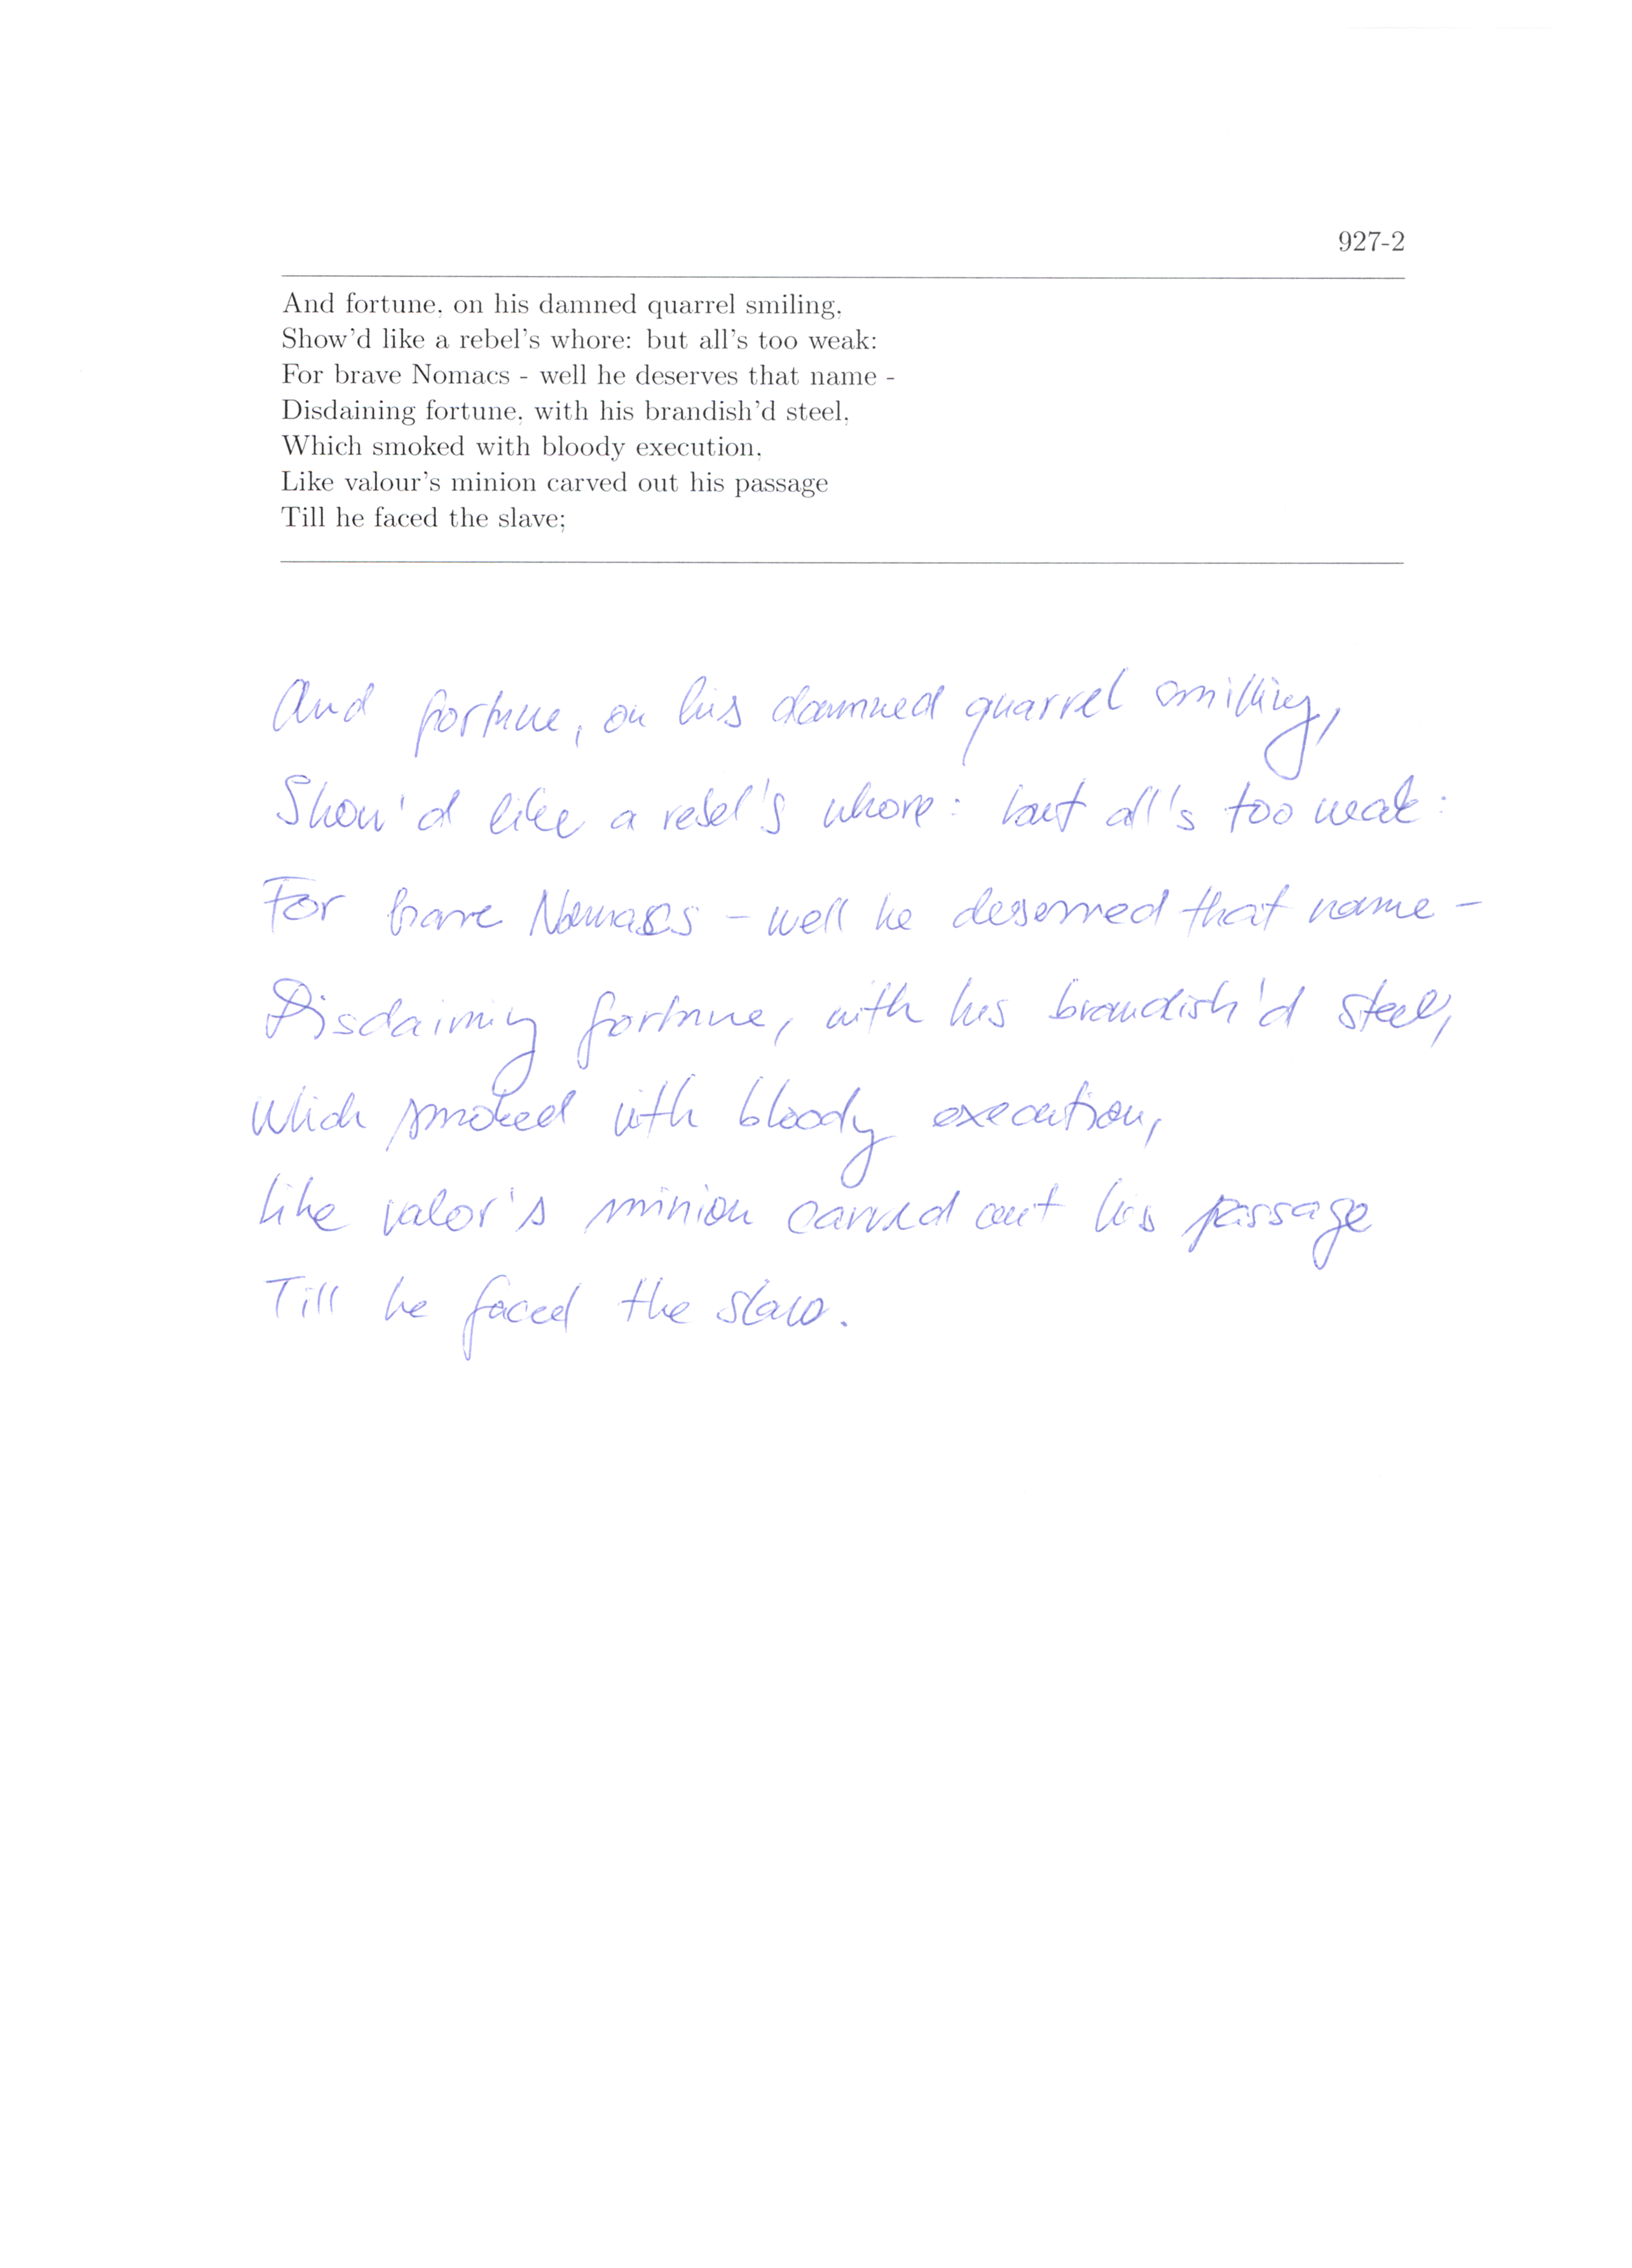 927-2
And fortune, on his damned quarrel smiling,
Show'd like a rebel's whore: but all's too weak:
For brave Nomacs - well he deserves that name -
Disdaining fortune, with his brandish'd steel,
Which smoked with bloody execution,
Like valour's minion carved out his passage
Till he faced the slave;
And fortune, on his damned quarrel smilling,
Show'd like a rebel's whore: but all's too weak:
For brave Nomacs - well he deserved that name -
Disdaining fortune, with his brandish'd steel,
Which smoked with bloody execution,
like valor's minion carved out his passage
Till he faced the slave.